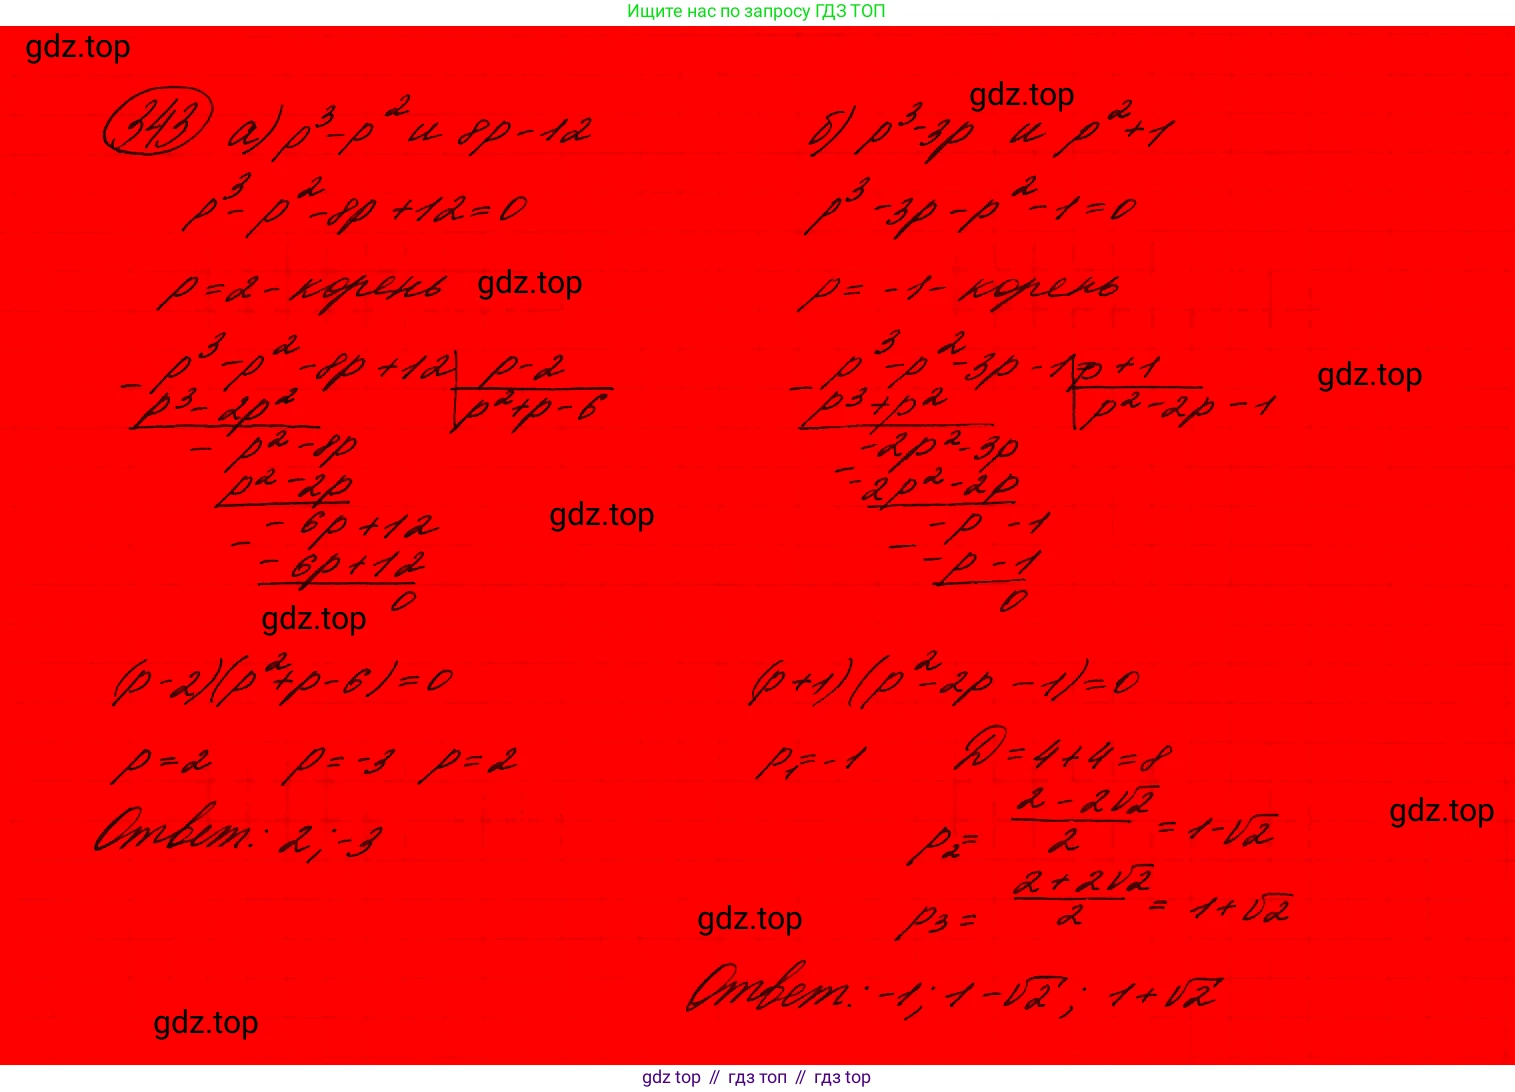 Ищите нас по запросу ГДЗ ТОП
gdz.top
343 а) p³-p² и 8p-12
p³-p²-8p+12=0
p=2- корень
gdz.top
p³-p²-8p+12 | p-2
- p³-2p² | p²+p-6
- p²-8p
p²-2p
- -6p+12
-6p+12
0
gdz.top
gdz.top
(p-2)(p²+p-6)=0
p=2 p=-3 p=2
Ответ: 2; -3
gdz.top
gdz.top
б) p³-3p и p²+1
p³-3p-p²-1=0
p=-1- корень
p³-p²-3p-1 | p+1
- p³+p² | p²-2p-1
gdz.top
-2p²-3p
- -2p²-2p
-p-1
- -p-1
0
(p+1)(p²-2p-1)=0
p₁=-1 D=4+4=8
p₂= 2-2√2 / 2 = 1-√2
gdz.top
p₃= 2+2√2 / 2 = 1+√2
gdz.top
Ответ: -1; 1-√2; 1+√2
gdz top // гдз топ // гдз top